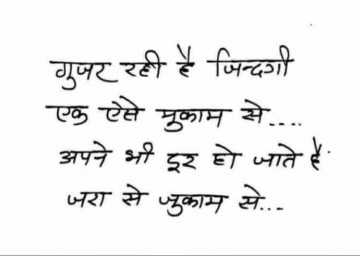 गुजर रही है जिन्दगी
एक ऐसे मुकाम से....
अपने भी दूर हो जाते हैं.
जरा से जुकाम से...